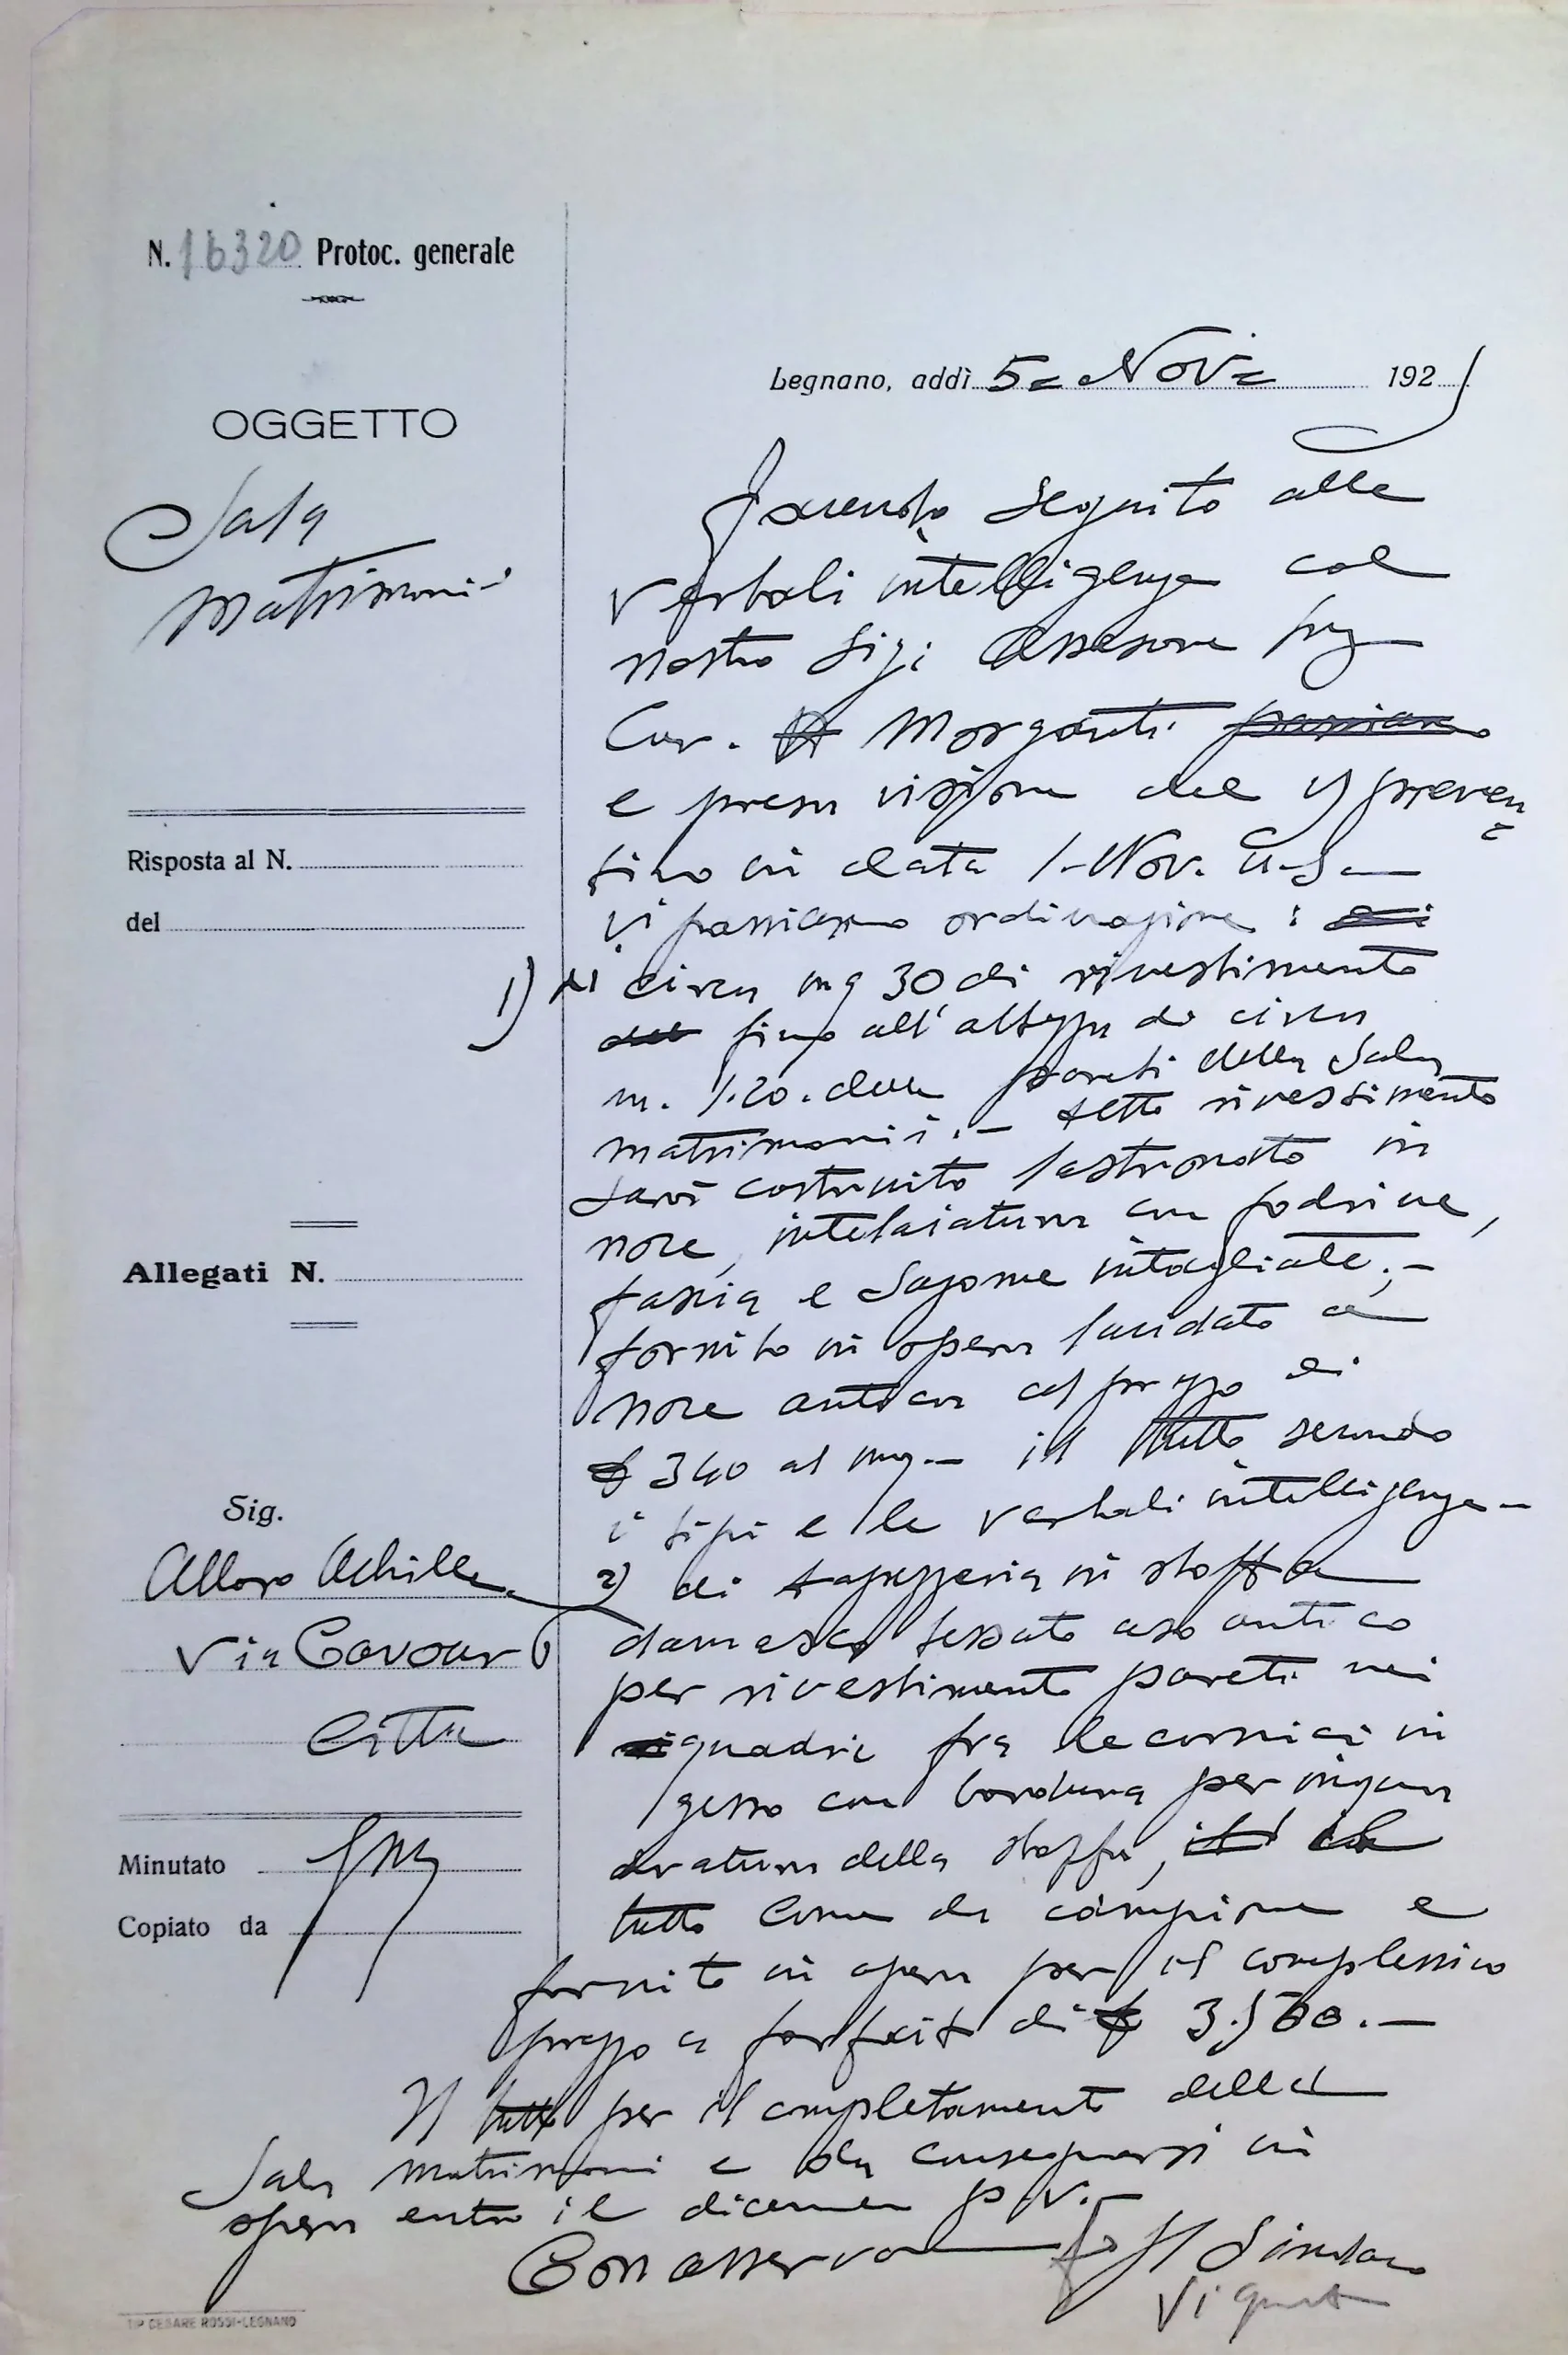 N. 16320 Protoc. generale
Legnano, addì 5 = Nov = 192
OGGETTO
Sala
Matrimoni
Risposta al N.
del
Allegati N.
Sig.
Alloro Achille
Via Cavour 6
Città
Minutato
Copiato da
Facendo seguito alle
verbali intelligenze col
nostro Sig. Assessore
Cav. Morganti
e presa visione del preven
tivo in data 1- Nov. u.s.
Vi passiamo ordinazione :
1) di circa mq 30 di rivestimento
fino all'altezza di circa
m. 1.20. delle pareti della Sala
matrimonii. - detto rivestimento
sarà costruito lastronato in
noce, intelaiatura con fodrine,
fascia e sagome intagliate. -
fornito in opera lucidato a
noce antica al prezzo di
£ 340 al mq. - il tutto secondo
i tipi e le verbali intelligenze -
2) di tapezzeria in stoffa
damasco tessuto uso antico
per rivestimento pareti nei
riquadri fra le cornici in
gesso con bordura per inqua
dratura della stoffa,
tutto come da campione e
fornito in opera per il complessivo
prezzo a forfait di £ 3.500. -
Il tutto per il completamento della
Sala matrimoni e da consegnarsi in
opera entro il dicembre p.v. -
Con osservanza Il Sindaco
TIP. CESARE ROSSI-LEGNANO